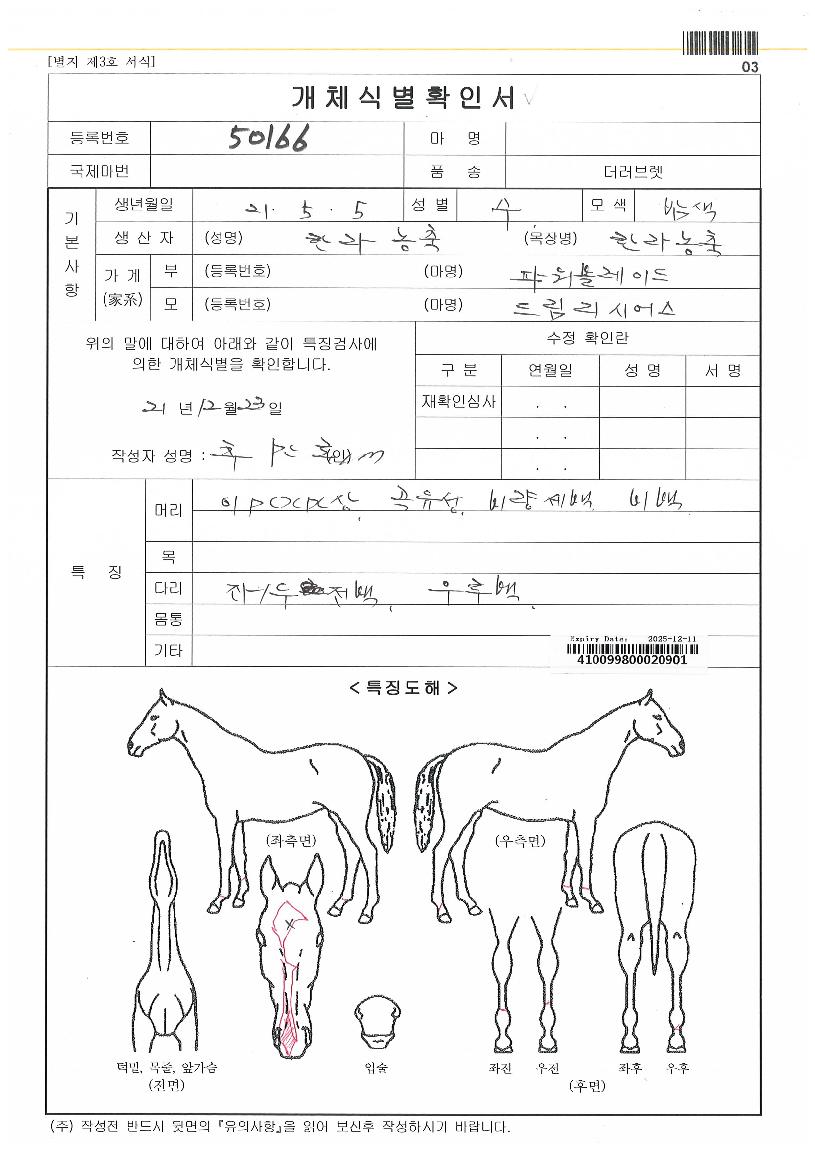 03
[별지 제3호 서식]
개체식별확인서
등록번호 50166 마 명
국제마번 품 송 더러브렛
기본사항
생년월일 21. 5. 5 성 별 수 모 색 밤색
생 산 자 (성명) 한라농축 (목장명) 한라농축
가 계 (家系) 부 (등록번호) (마명) 파워블레이드
모 (등록번호) (마명) 드림리시어스
위의 말에 대하여 아래와 같이 특징검사에
의한 개체식별을 확인합니다.
21 년 12 월 23 일
작성자 성명 :
수정 확인란
구 분 연월일 성 명 서 명
재확인심사 . .
. .
. .
특 징
머리 곡유성, 비량세백, 비백
목
다리 전백, 우후백.
몸통
기타
Expiry Date: 2025-12-11
410099800020901
< 특징도해 >
(좌측면) (우측면)
턱밑, 목줄, 앞가슴 입술 좌전 우전 좌후 우후
(전면) (후면)
(주) 작성전 반드시 뒷면의 『유의사항』을 읽어 보신후 작성하시기 바랍니다.